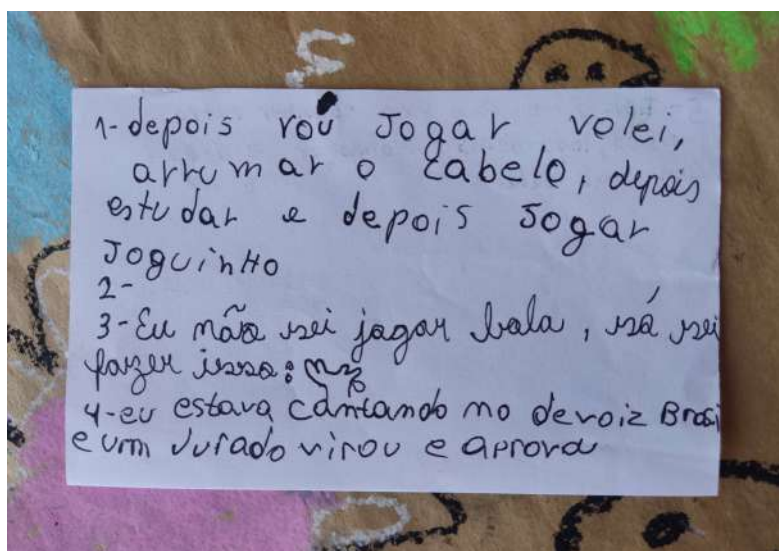 1-depois vou Jogar volei,
arrumar o cabelo, depois
estudar e depois Jogar
JoguinHo
2-
3-Eu não sei jogar bola, só sei
fazer isso:
4-eu estava cantando no devoiz Brasi
e um Jurado virou e aprova